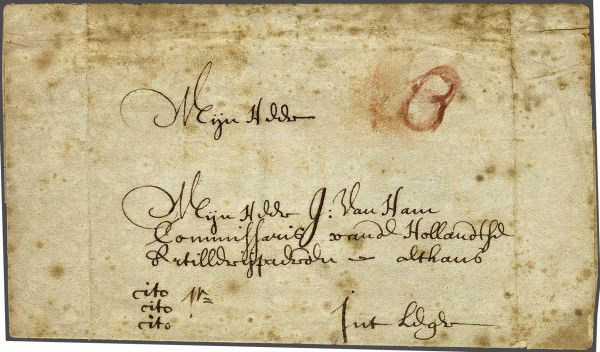 Mijn Hdde
Mijn Hdde J: Van Ham
Commissaris vande Hollandtse
Artilleriepaerden althans
cito
cito
cito
Int Leger